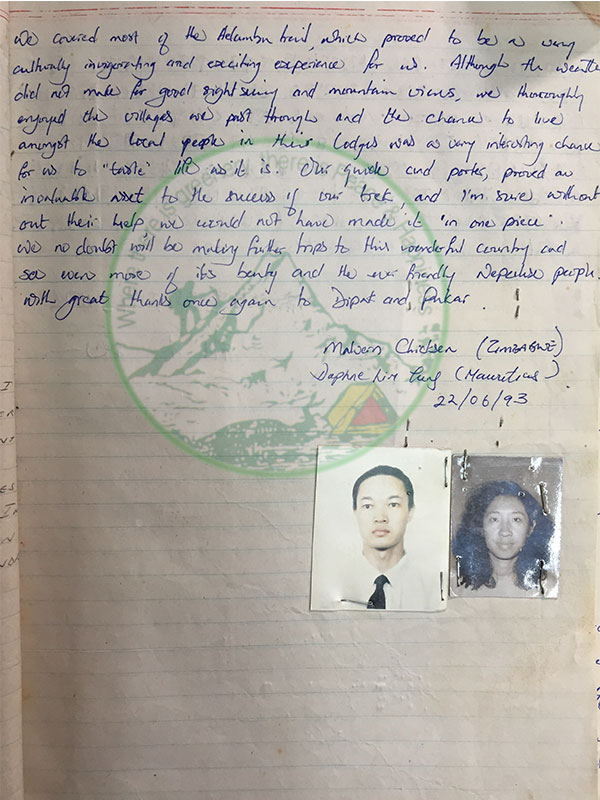 We covered most of the Helambu trail, which proved to be a very
culturally invigorating and exciting experience for us. Although the weather
did not make for good sight seeing and mountain views, we thoroughly
enjoyed the villages we past through and the chance to live
amongst the local people in their lodges was a very interesting chance
for us to "taste" life as it is. Our guide and porter, proved an
invaluable asset to the success of our trek, and I'm sure without
out their help we would not have made it "in one piece".
We no doubt will be making further trips to this wonderful country and
see even more of its beauty and the ever friendly Nepalese people.
With great thanks once again to Dipat and
(ZIMBABWE)
Daphne (Mauritius)
22/06/93
Where there is